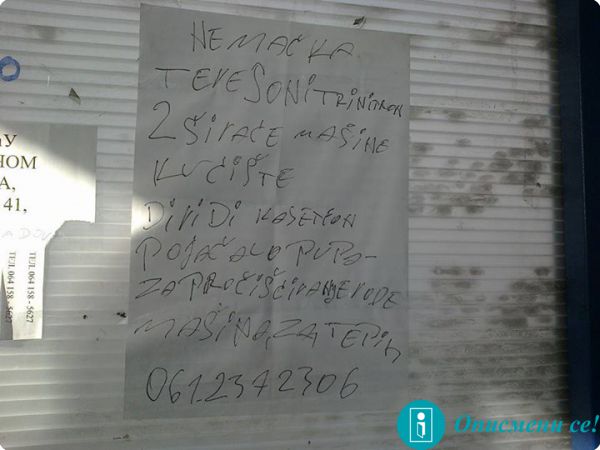 NEMAČKA
TEVE SONi TRiNiTRON
2 ŠiVAĆE MAŠiNE
KUĆiŠTE
DiViDi KASETFON
POJAČALO PUPA-
ZAPROČIŠĆIVANJEVODE
MAŠiNA,ZA,TEPih
061.2372306
У
НОМ
А,
41,
ТЕЛ. 064 158 - 5627
ТЕЛ. 064 158 - 5627
Описмени се!